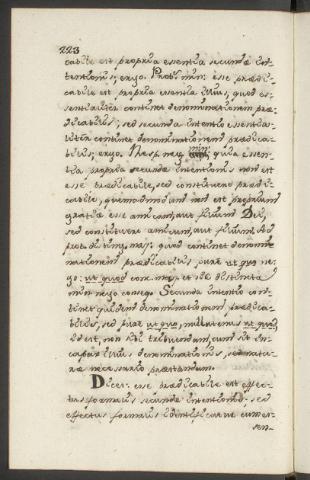 223
cabile est propria essentia secundæ in-
tentionis; ergo. Prob. min: esse prædi-
cabile est propria essentia illius, quod es-
sentialiter continet denominationem præ-
dicabilis; sed secunda intentio essentia-
liter continet denominationem prædica-
bilis; ergo. Resp. neg. min: quia essen-
tia propria secundæ intentionis non est
esse prædicabile, sed constituere prædi-
cabile, quemadmodum non est proprium
gratiæ esse amicum, aut filium Dei,
sed constituere amicum, aut filium. Ad
prob. disting. maj: quod continet denomi-
nationem prædicabilis, pure ut quo ne-
go: ut quod conc. maj. et sic distincta
min. nego conseq. Secunda intentio con-
tinet quidem denominationem prædica-
bilis, sed pure ut quo, nullatenus ut quod,
id est, non sibi tribuendam, cum sit in-
capax illius denominationis, sed
necessario præstandam.
Dices: esse prædicabile est effec-
tus formalis secundæ intentionis: sed
effectus formalis identificatur cum es-
sen-